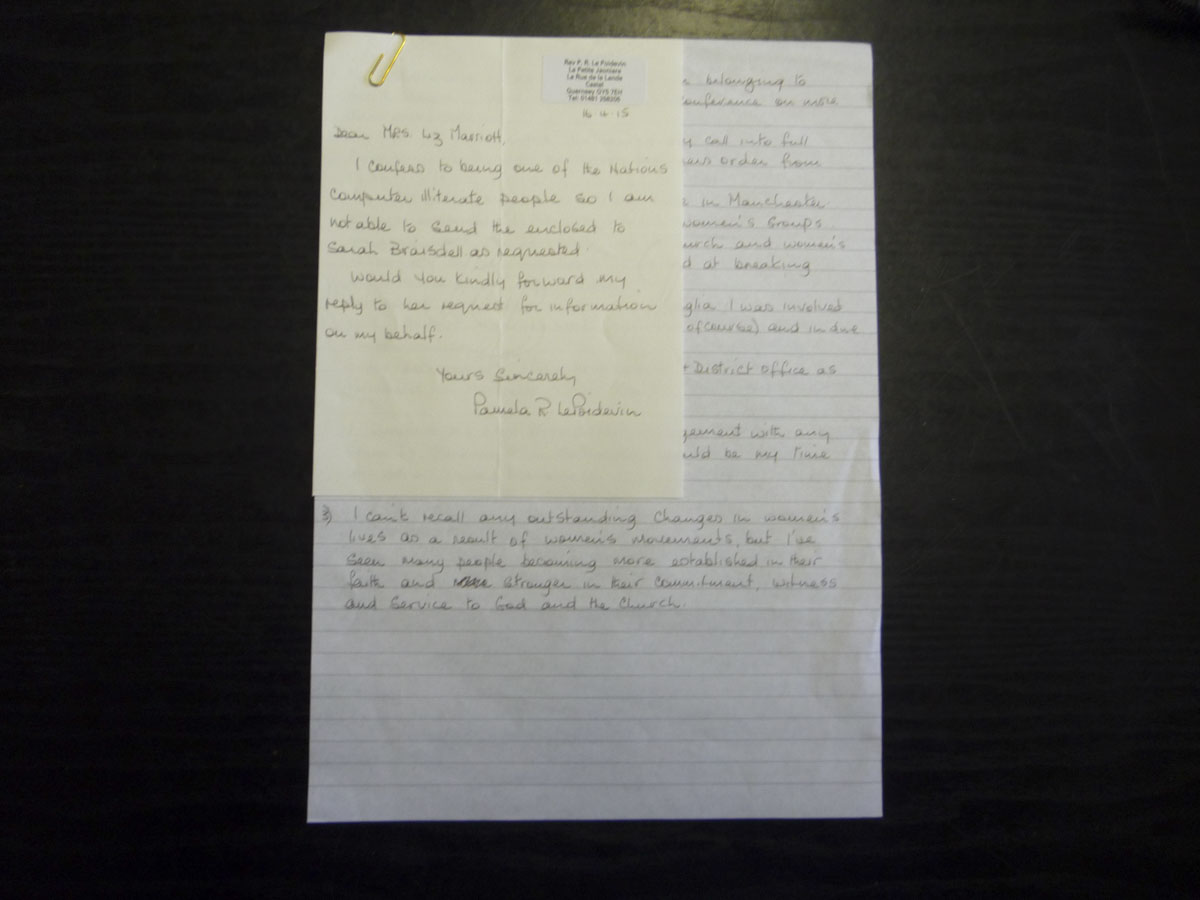 Rev P. R. Le Poidevin
La Petite Jaoniere
Le Rue de la Lande
Castel
Guernsey GY5 7EH
Tel: 01481 256205
16.4.15
Dear Mrs. Liz Marriott,
I confess to being one of the Nations
Computer illiterate people so I am
not able to send the enclosed to
Sarah Braisdell as requested.
Would you kindly forward my
reply to her request for information
on my behalf.
Yours Sincerely
Pamela R LePoidevin
belonging to
conference on more
call into full
order from
in Manchester.
women's groups.
and women's
at breaking
I was involved
of course) and in due
District office as
with any
be my time
3) I can't recall any outstanding changes in women's
lives as a result of women's movements, but I've
seen many people becoming more established in their
faith and stronger in their commitment, witness
and service to God and the Church.